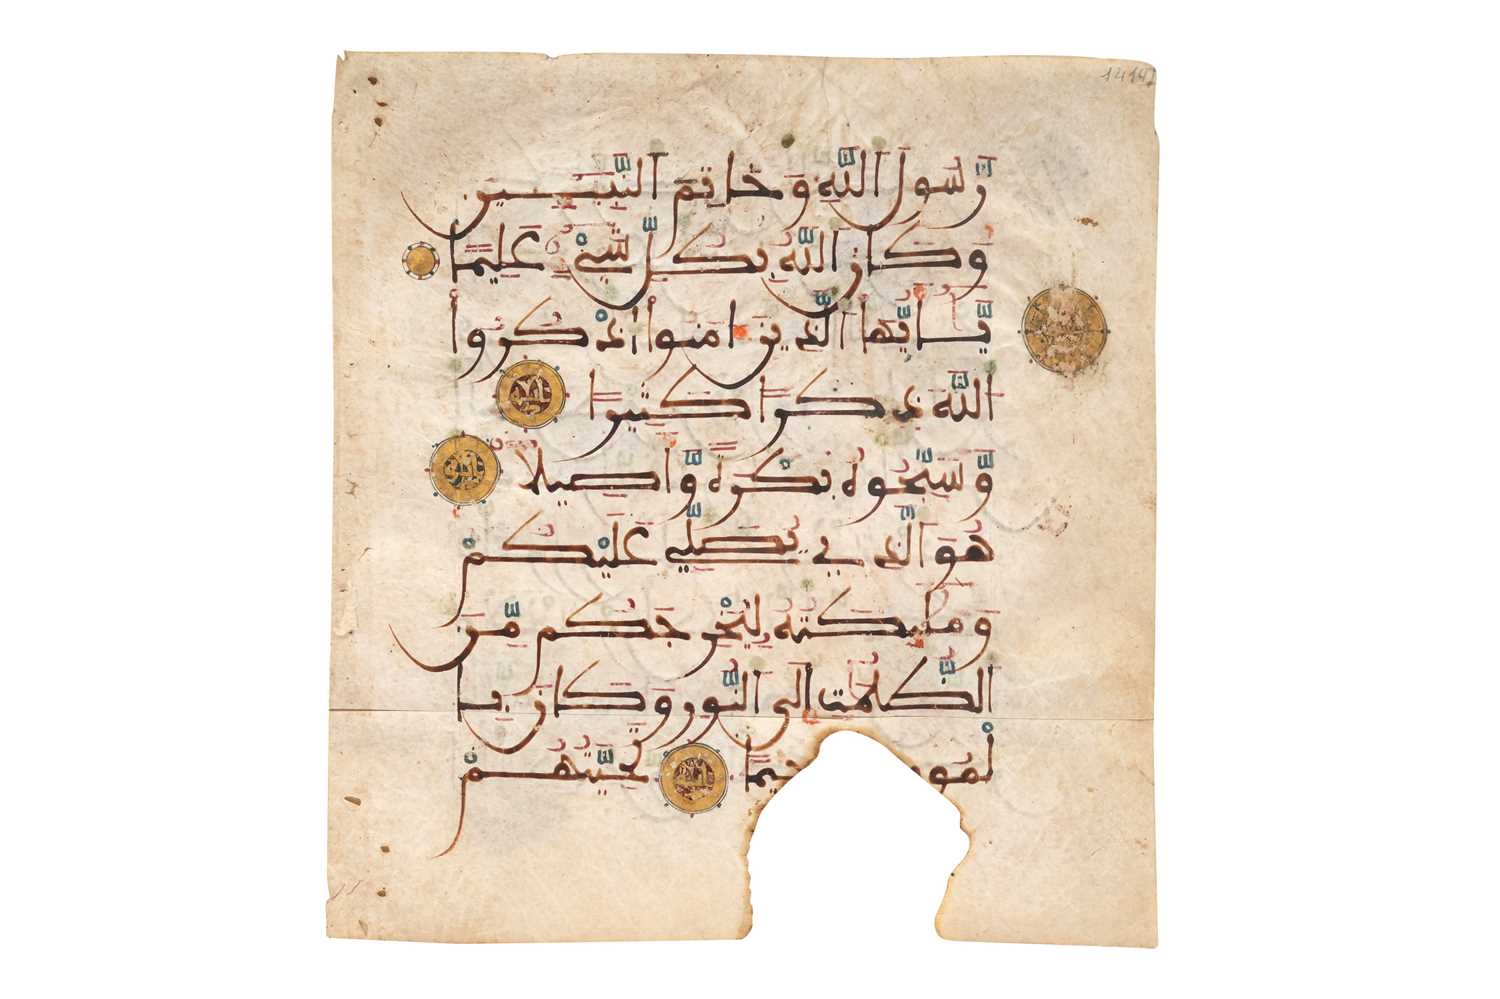 رَّسُولَ اللَّهِ وَخَاتِمَ النَّبِيـِٕينَ
وَكَانَ اللَّهُ بِكُلِّ شَيْءٍ عَلِيمًا
يَّأَيُّهَا الَّذِينَ ءَامَنُوا اذْكُرُوا
اللَّهَ ذِكْرًا كَثِيرًا
وَّسَبِّحُوهُ بُكْرَةً وَّأَصِيلًا
هُوَ الَّذِي يُصَلِّي عَلَيْكُمْ
وَمَلَٰٓئِكَتُهُ لِيُخْرِجَكُم مِّنَ
الظُّلُمَٰتِ إِلَى النُّورِ وَكَانَ بِا
لْمُو حِيمًا تَحِيَّتُهُمْ
1414